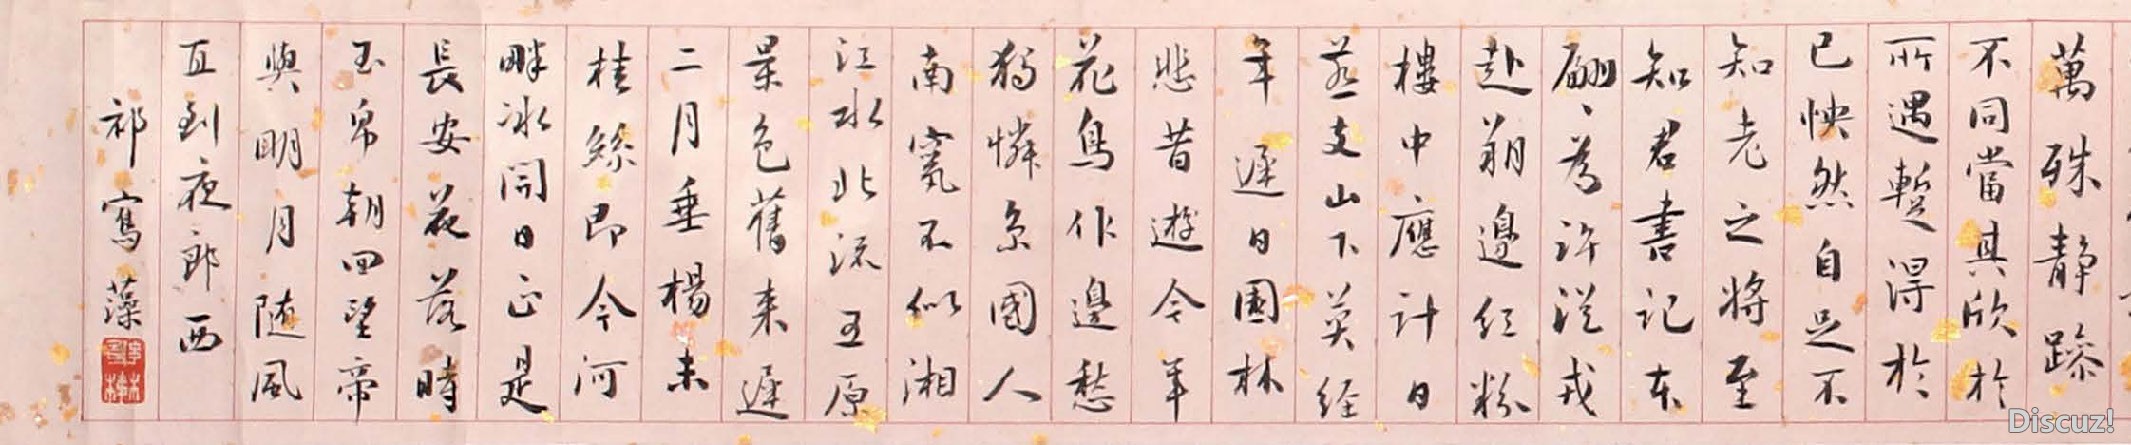 萬殊靜躁
不同當其欣於
所遇暫得於
已怏然自足不
知老之將至
知君書記本
翩、為許從戎
赴朔邊紅粉
樓中應計日
燕支山下莫經
年 遲日園林
悲昔遊今年
花鳥作邊愁
獨憐京國人
南竄不似湘
江水北流五原
色舊来遲
二月垂楊未
挂絲即今河
畔冰開日正是
長安花落時
玉帛朝回望帝
與明月随風
直到夜郎西
祁寯藻
Discuz!